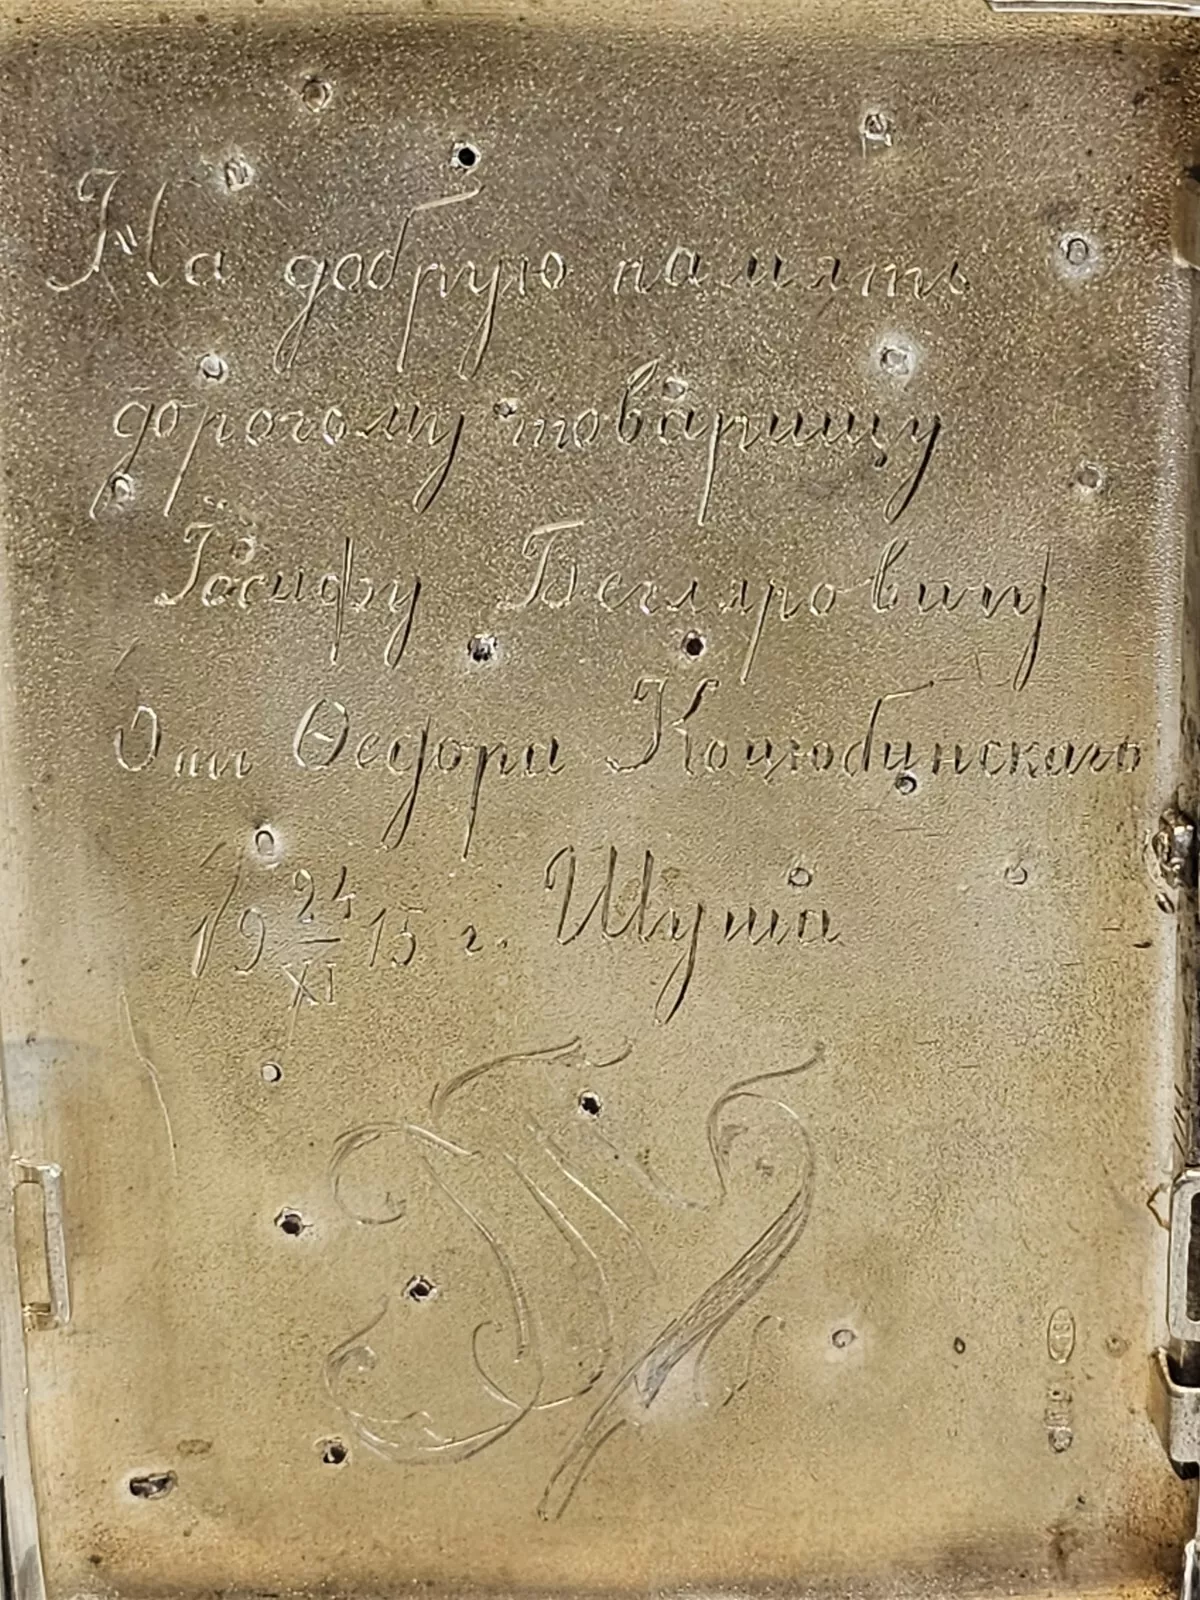 На добрую память
дорогому товарищу
Іосифу Бегляровичу
Отъ Ѳедора Коцюбинскаго
19 24/XI 15 г. Шуша